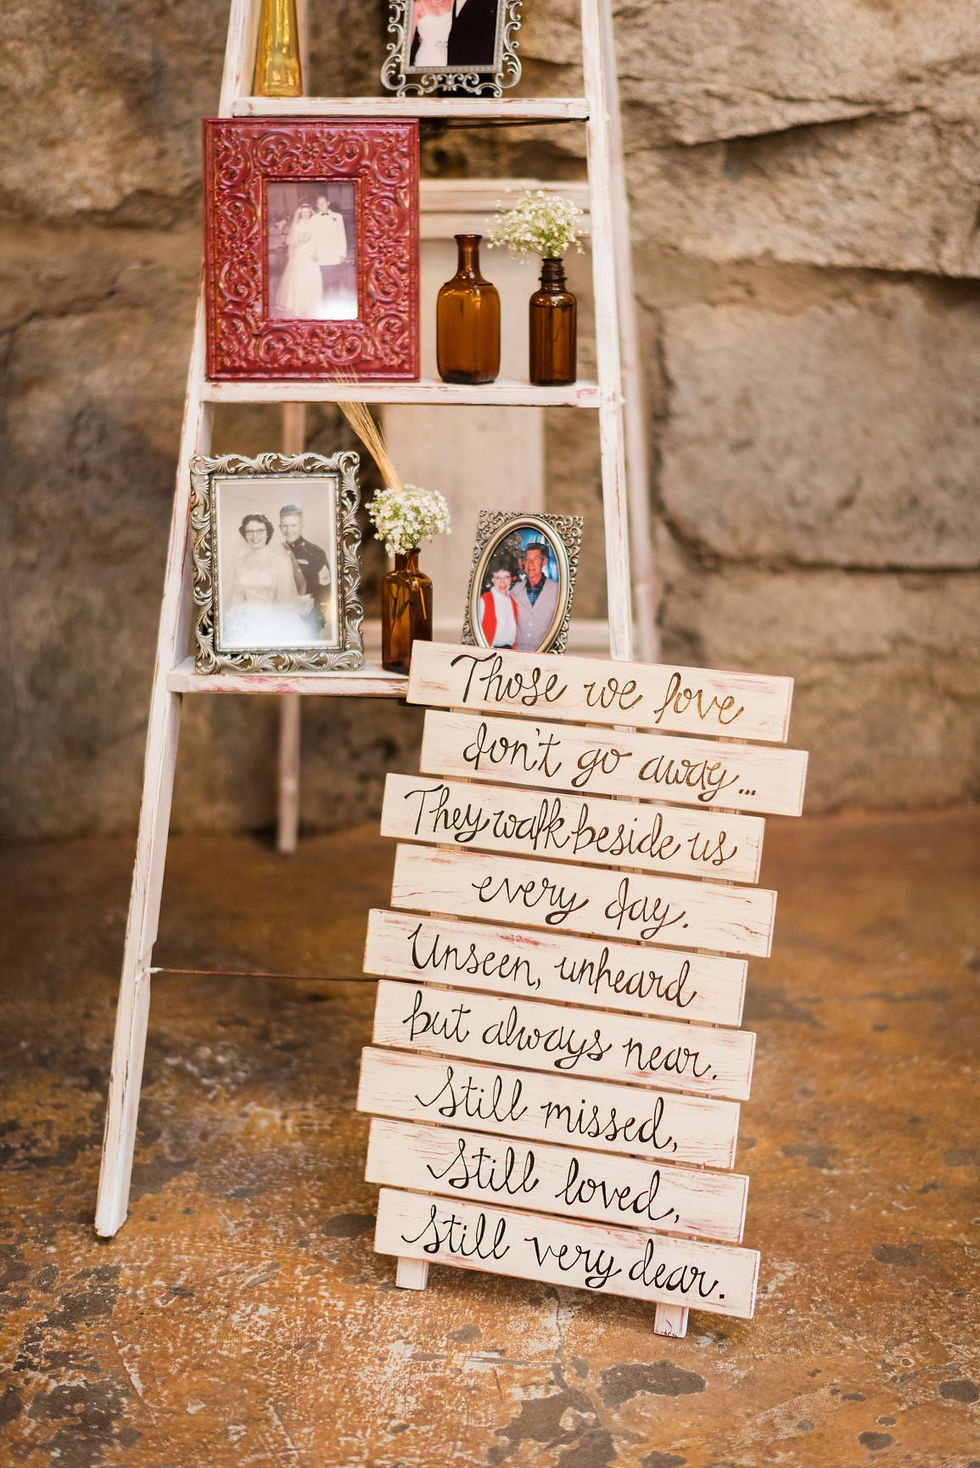 Those we love
don't go away...
They walk beside us
every day.
Unseen, unheard
but always near.
Still missed,
Still loved,
Still very dear.